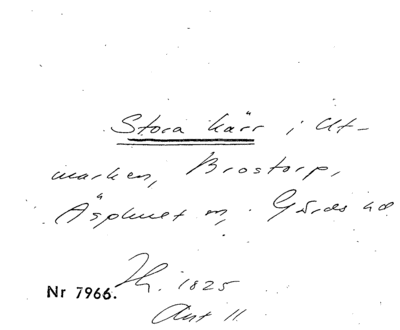 Stora kärr i Ut-
marken, Brostorp,
Äsphult m, Gärds hd
Nr 7966. Th. 1825
Akt 11.